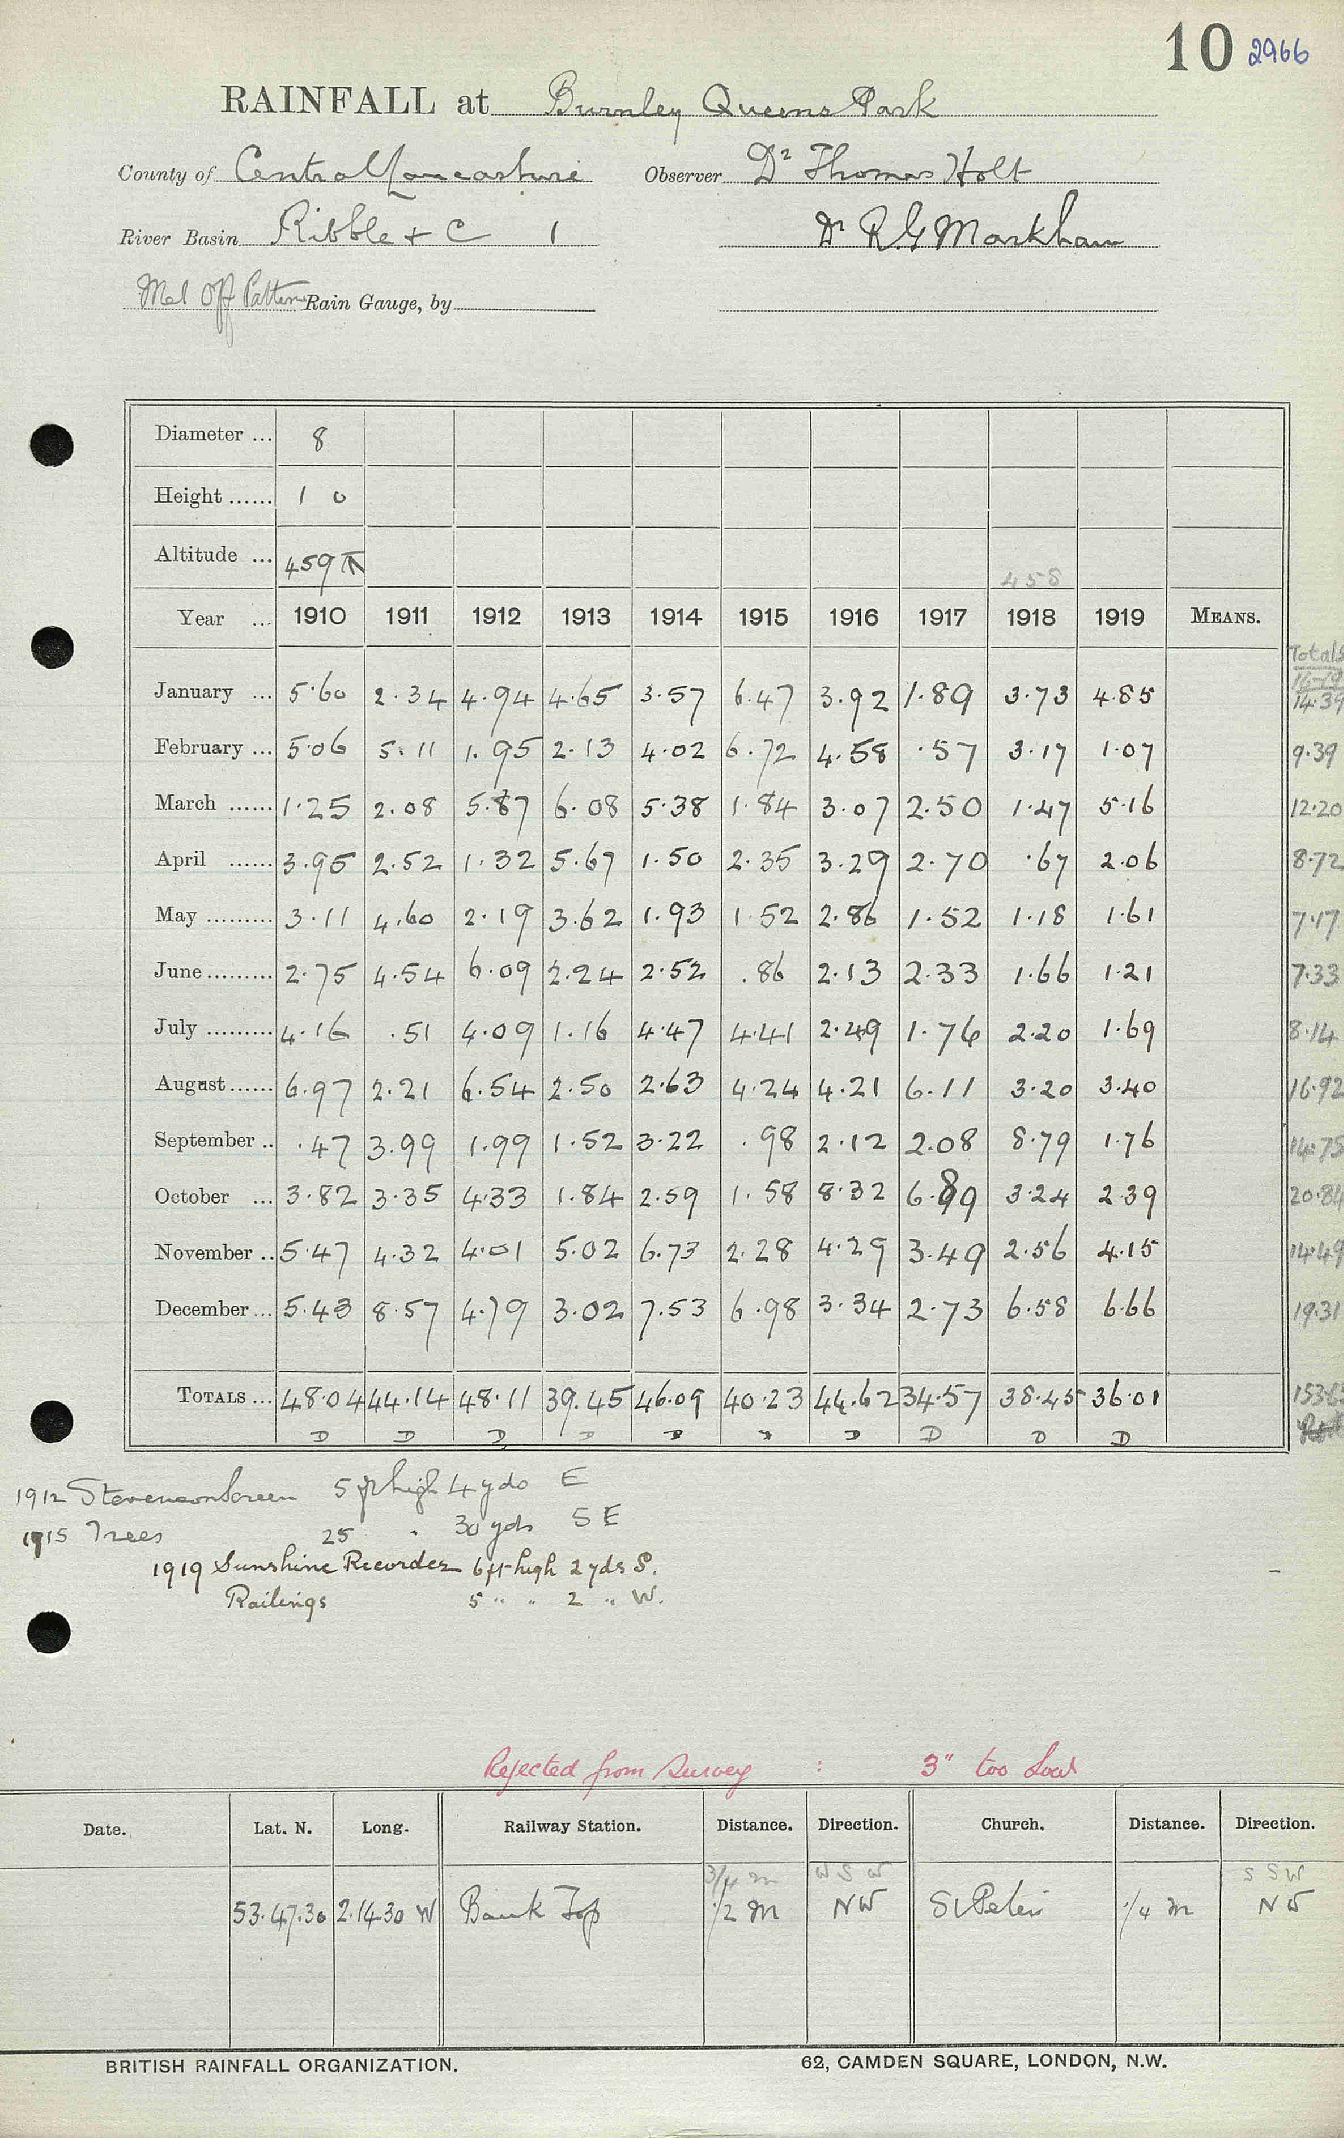 10 2966
RAINFALL at Burnley Queens Park
County of Central Lancashire Observer Dr Thomas Holt
River Basin Ribble + C 1 Dr R G Markham
Met Off Pattern Rain Gauge, by
Diameter ... 8
Height ...... 1 0
Altitude ... 459 T
458
Year ... 1910 1911 1912 1913 1914 1915 1916 1917 1918 1919 MEANS. Totals
16-19
January ... 5.60 2.34 4.94 4.65 3.57 6.47 3.92 1.89 3.73 4.85 14.39
February ... 5.06 5.11 1.95 2.13 4.02 6.72 4.58 .57 3.17 1.07 9.39
March ...... 1.25 2.08 5.87 6.08 5.38 1.84 3.07 2.50 1.47 5.16 12.20
April ...... 3.95 2.52 1.32 5.67 1.50 2.35 3.29 2.70 .67 2.06 8.72
May ......... 3.11 4.60 2.19 3.62 1.93 1.52 2.86 1.52 1.18 1.61 7.17
June ......... 2.75 4.54 6.09 2.24 2.52 .86 2.13 2.33 1.66 1.21 7.33
July ......... 4.16 .51 4.09 1.16 4.47 4.41 2.49 1.76 2.20 1.69 8.14
August ...... 6.97 2.21 6.54 2.50 2.63 4.24 4.21 6.11 3.20 3.40 16.92
September .. .47 3.99 1.99 1.52 3.22 .98 2.12 2.08 8.79 1.76 14.75
October ... 3.82 3.35 4.33 1.84 2.59 1.58 8.32 6.89 3.24 2.39 20.84
November .. 5.47 4.32 4.01 5.02 6.73 2.28 4.29 3.49 2.56 4.15 14.49
December ... 5.43 8.57 4.79 3.02 7.53 6.98 3.34 2.73 6.58 6.66 19.31
TOTALS ... 48.04 44.14 48.11 39.45 46.09 40.23 44.62 34.57 38.45 36.01
D D D D D D D D D D
1912 Stevenson Screen 5 ft high 4 yds E
1915 Trees 25 " 30 yds SE
1919 Sunshine Recorder 6 ft high 2 yds S.
Railings 5 " " 2 " W.
Rejected from Survey : 3" too low
Date. Lat. N. Long. Railway Station. Distance. Direction. Church. Distance. Direction.
3/4 m W S W S S W
53.47.30 2.14.30 W Bank Top 1/2 m NW St Peters 1/4 m NW
BRITISH RAINFALL ORGANIZATION. 62, CAMDEN SQUARE, LONDON, N.W.